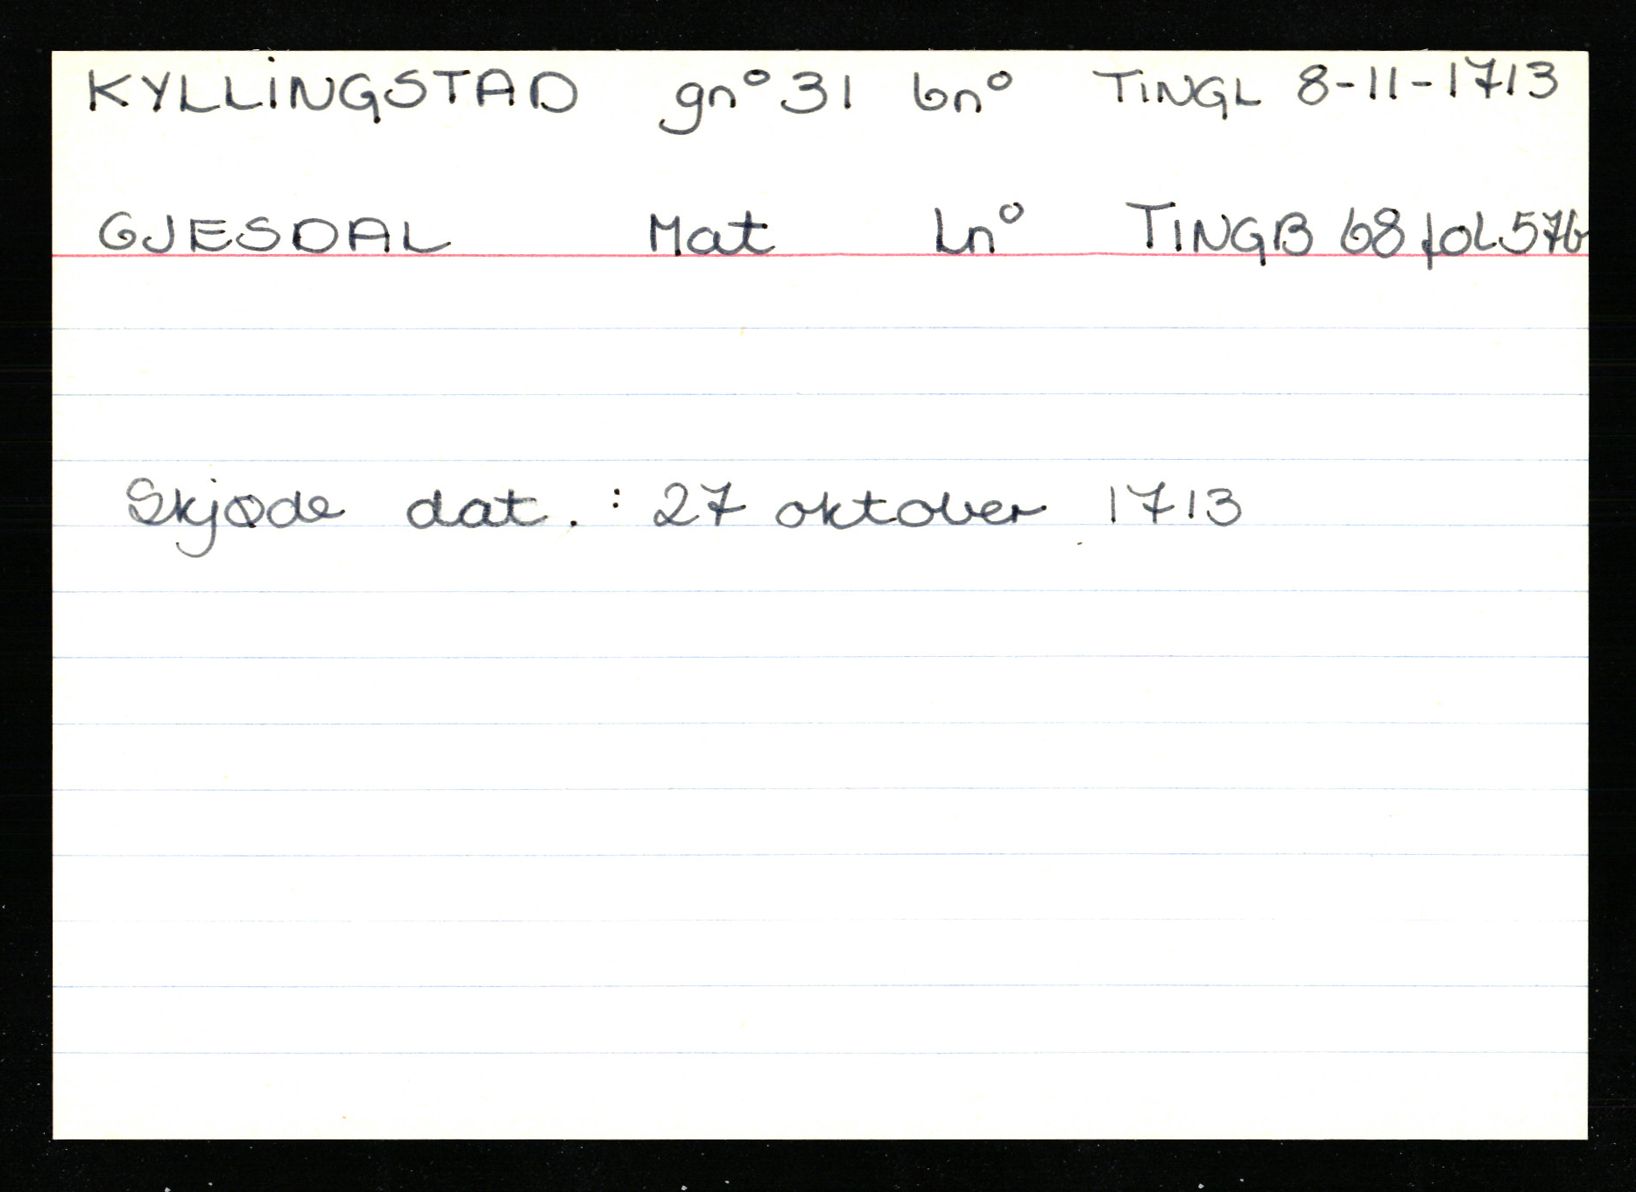 KYLLINGSTAD gn° 31 bn° TINGL 8-11-1713
GJESDAL Mat Ln° TINGB 68 fol 57b
Skjøde dat. : 27 oktober 1713